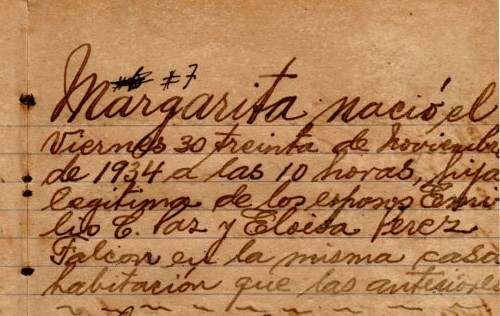 #7
Margarita nació, el
Viernes 30 treinta de Noviembre
de 1934 a las 10 horas, hija
legitima de los esposos Emi
lio C. Paz y Eloisa Perez
Falcon en la misma casa
habitación que las anteriores